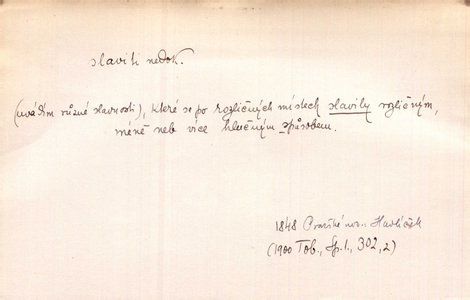 slaviti nedok.
(uvádím různé slavnosti), které se po rozličných místech slavily rozličným,
méně neb více hlučným způsobem.
1848 Pražské nov.: Havlíček
(1900 Tob., Sp. 1., 302, 2)